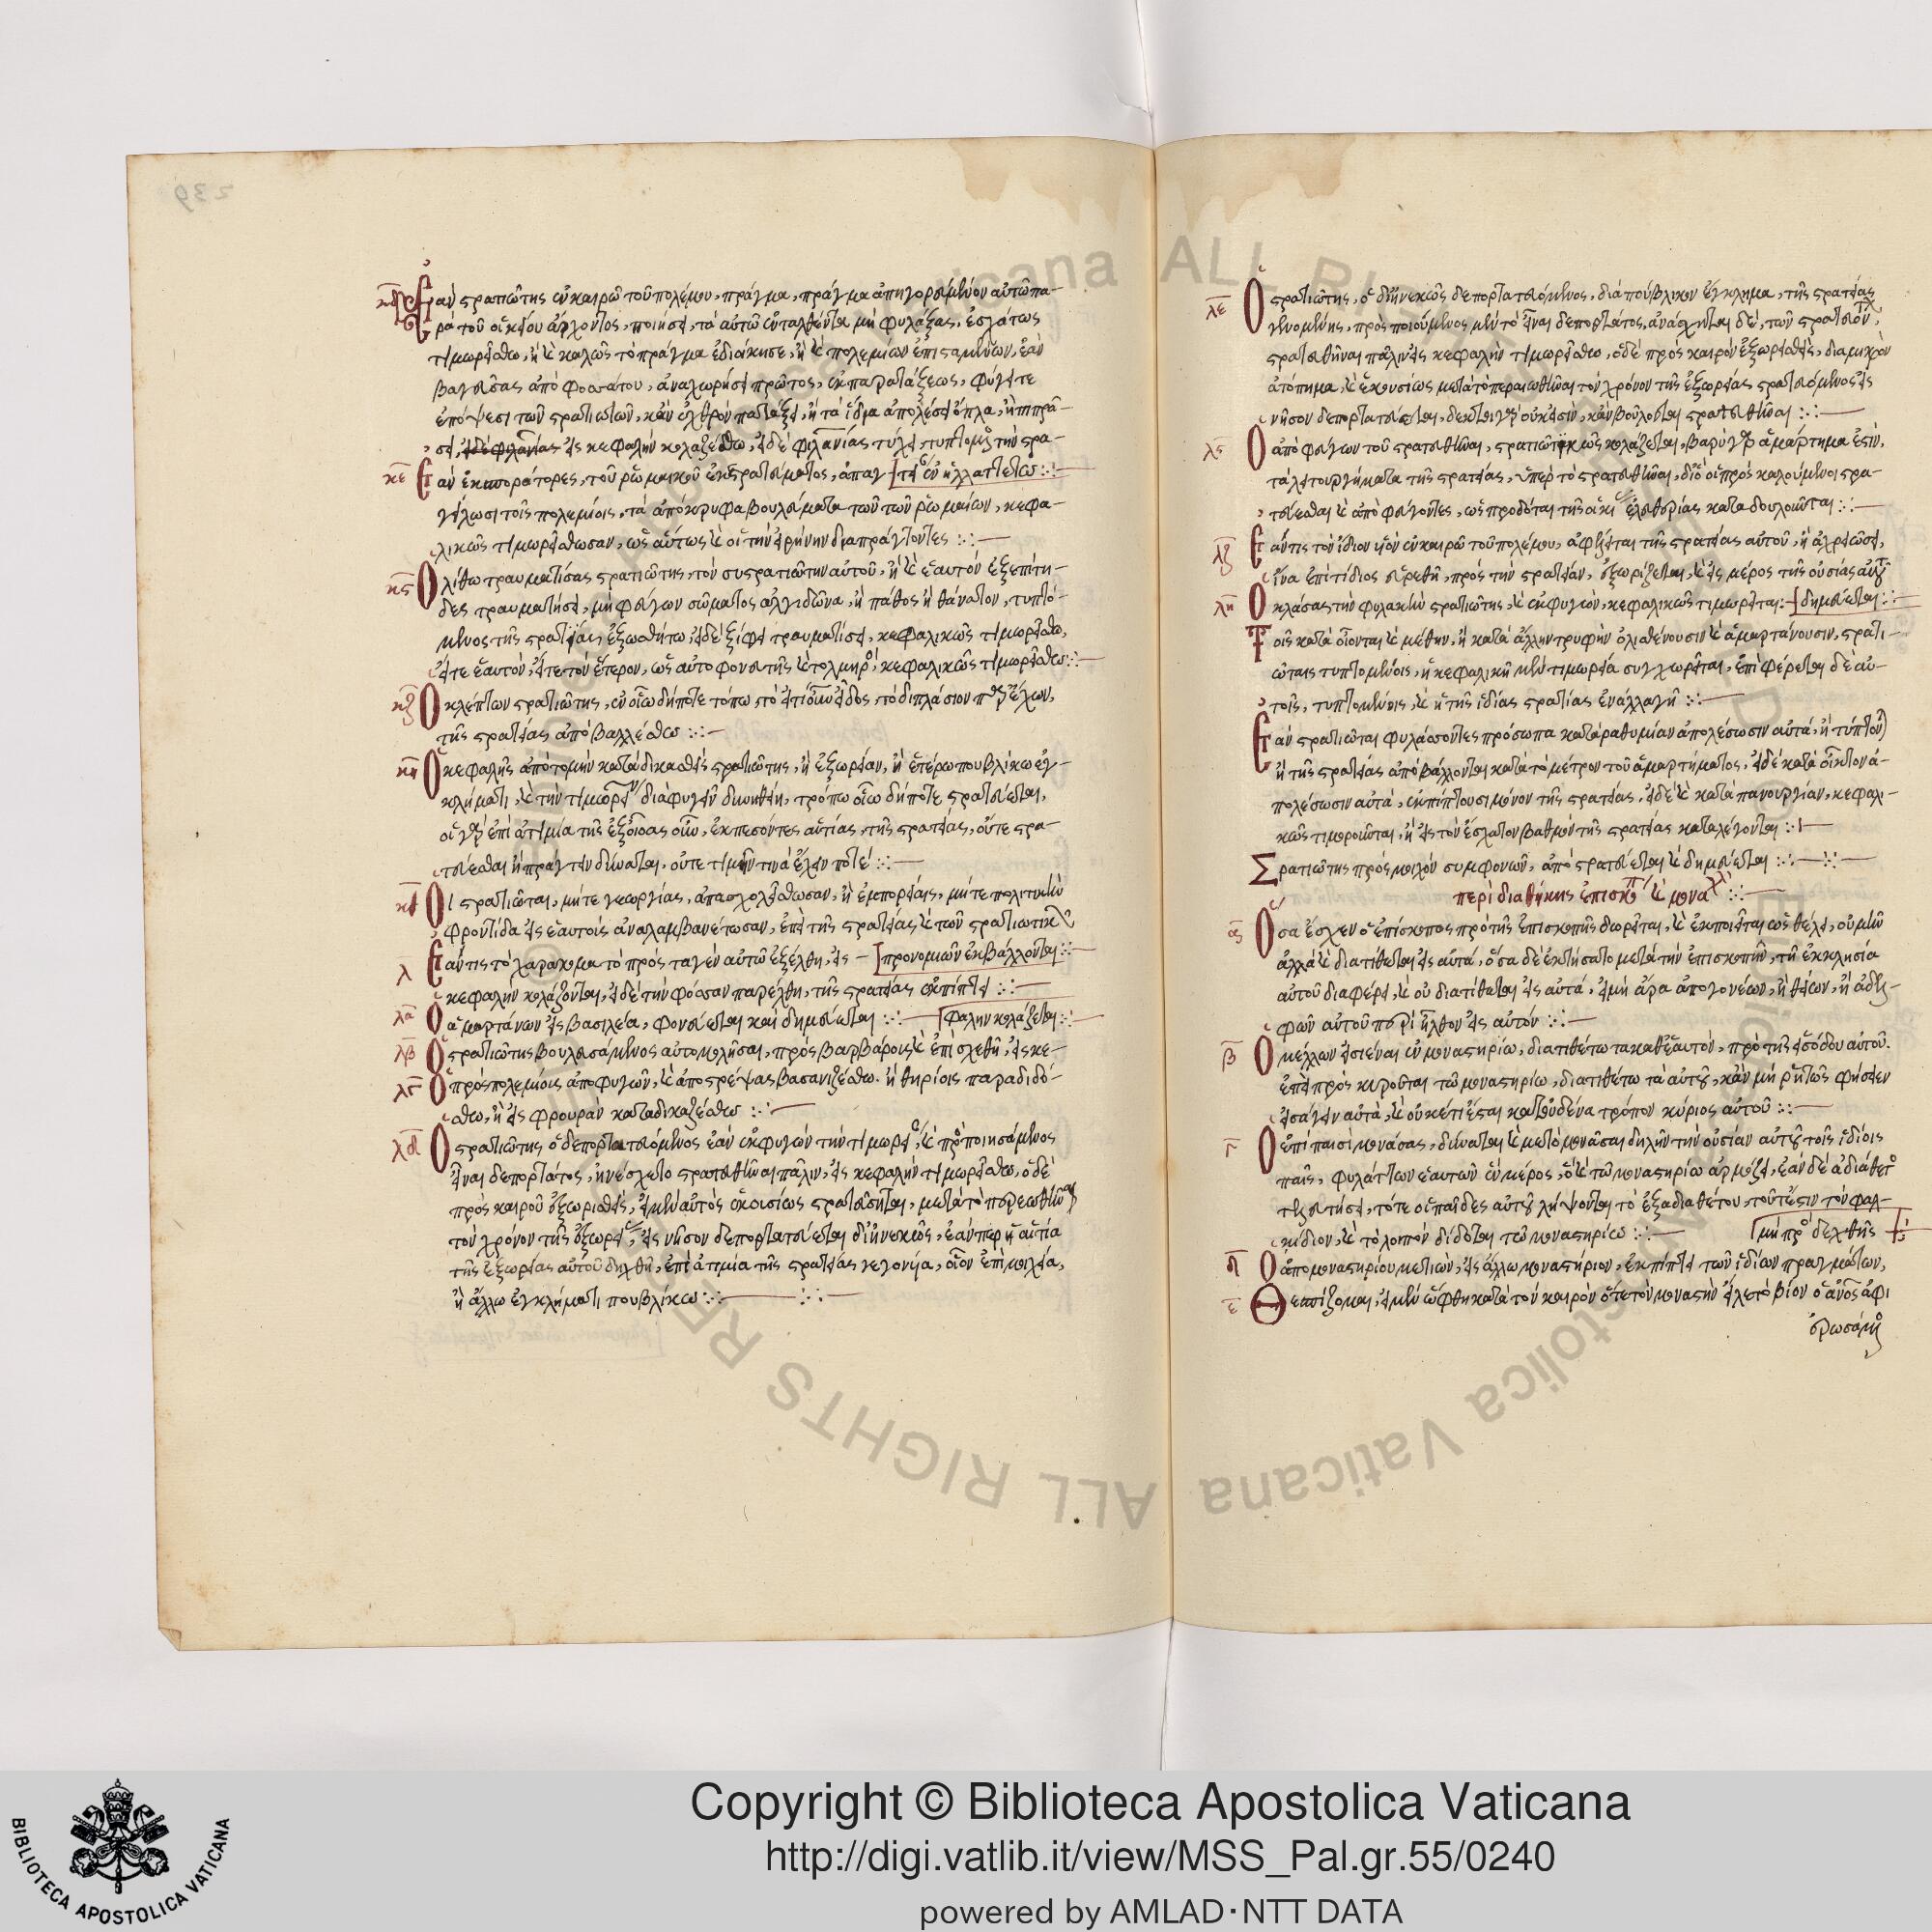 239
κδ Ἐὰν στρατιώτης ἐν καιρῶ τοῦ πολέμου, πράγμα, πράγμα ἀπηγορευμένον αὐτῶ πα-
ρὰ τοῦ οἰκείου ἄρχοντος, ποιήσει, τὰ αὐτῶ ἐνταλθέντα μὴ φυλάξας, ἐσχάτως
τιμωρείσθω, ἢ καὶ καλῶς τὸ πράγμα ἐδιοίκησε, ἢ καὶ πολεμίων ἐπισταμένων, ἐὰν
ἀπὸ φοσάτου, ἀναχωρήσει πρῶτος, ἐκ παρατάξεως, φύγει τε
ἐπόψεσι τῶν στρατιωτῶν, κἂν ἐχθρὸν πατάξει, ἢ τὰ ἴδια ἀπολέσει ὅπλα, ἢ πιπρά-
σει, εἰς κεφαλὴν κολαζέσθω, εἰ δὲ φιλανίας τύχει, τυπτομος τὴν στρα-
κε Ἐὰν ἐκσποράτορες, τοῦ ῥωμαικοῦ ἐκστρατεύματος, ἀπαγ- τείαν ἐναλλαττέτω
γέλωσι τοῖς πολεμίοις, τὰ ἀπόκρυφα βουλεύματα τῶν τῶν ῥωμαίων, κεφα-
λικῶς τιμωρείσθωσαν, ὡς αὕτως καὶ οἱ τὴν εἰρήνην διαπράττοντες
κς Ὁ λίθω τραυματίσας στρατιώτης, τὸν συστρατιώτην αὐτοῦ, ἢ καὶ ἑαυτὸν ἐξεπίτη-
δες τραυματήσει, μὴ φεύγων σώματος ἀλγιδῶνα, ἢ πάθος ἢ θάνατον, τυπτό-
μενος τῆς στρατείας ἐξωθήτω, εἰ δὲ ξίφει τραυματίσει, κεφαλικῶς τιμωρείσθω,
εἴτε ἑαυτὸν, εἴτε τὸν ἕτερον, ὡς αὐτοφονευτὴς καὶ τολμηρὸς, κεφαλικῶς τιμωρείσθω
κζ Ὁ κλέπτων στρατιώτης, ἐν οἵω δήποτε τόπω, τὸ διπλάσιον παρέχων,
τῆς στρατείας ἀποβαλλέσθω
κη Ὁ κεφαλῆς ἀποτομὴν καταδικασθεὶς στρατιώτης, ἢ ἐξωρίαν, ἢ ἑτέρω πουβλίκω ἐγ-
κλήματι, καὶ τὴν τιμωρείαν διαφυγεῖν δυνηθείη, τρόπω οἵω δήποτε, στρατεύεται,
οἱ γὰρ ἐπὶ ἀτιμία τῆς ἐκπεσόντες αἰτίας, τῆς στρατείας, οὔτε στρα-
τεύεσθαι ἢ πράττειν δύνανται, οὔτε τιμήν τινα ἔχειν ποτέ
κθ Οἱ στρατιῶται, μήτε γεωργίας, ἀπασχολείσθωσαν, ἢ ἐμπορείαις, μήτε πολιτικὴν
φροντίδα εἰς ἑαυτοὺς ἀναλαμβανέτωσαν, ἐπεὶ τῆς στρατείας καὶ τῶν στρατιωτικῶν
λ Ἐάν τις τὸ χαράκομα τὸ προσταγὲν αὐτῶ ἐξέλθη, εἰς – προνομιῶν ἐκβάλλονται
κεφαλὴν κολάζονται, εἰ δὲ τὴν φόσσαν παρέλθη, τῆς στρατείας ἐκπίπτει
λα Ὁ ἁμαρτάνων εἰς βασιλεία, φονεύεται καὶ δημεύεται φαλὴν κολάζεται
λβ Ὁ στρατιώτης βουλευσάμενος αὐτομολῆσαι, πρὸς βαρβάρους καὶ ἐπισχεθῆ, εἰς κε-
λγ Ὁ πρὸς πολεμίοις ἀποφυγὼν, καὶ ἀποστρέψας βασανιζέσθω, ἢ θηρίοις παραδιδό-
σθω, ἢ εἰς φρουρὰν καταδικαζέσθω
λδ Ὁ στρατιώτης ὁ δεπορτατευόμενος ἐὰν ἐκφυγὼν τὴν τιμωρείαν, καὶ προσποιησάμενος
εἶναι δεπορτάτος, ἠνέσχετο στρατευθῆναι πάλιν, εἰς κεφαλὴν τιμωρείσθω, ὁ δὲ
πρὸς καιροῦ ἐξωρισθεὶς, εἰ μὲν αὐτὸς ἑκουσίως στρατεύσηται, μετὰ τὸ περεωθῆναι
τὸν χρόνον τῆς ἐξωρίας, εἰς νῆσον δεπορτατεύεται διηνεκῶς, ἐάνπερ ἡ αἰτία
τῆς ἐξωρίας αὐτοῦ δηχθῆ, ἐπὶ ἀτιμία τῆς στρατείας γεγονῆα, οἷον ἐπὶ μοιχεία,
ἢ ἄλλω ἐγκλήματι πουβλίκω
λε Ὁ στρατιώτης, ὁ διηνεκῶς δεπορτατευόμενος, διὰ πούβλικον ἔγκλημα, τῆς στρατείας
γενομένης, προσποιούμενος μὲν τὸ εἶναι δεπορτάτος, ἀνάσχηται δὲ, τῶν στρατευόντων,
στρατευθῆναι πάλιν εἰς κεφαλὴν τιμωρείσθω, ὁ δὲ πρὸς καιρὸν ἐξωρισθεὶς, διὰ μικρὸν
ἀτόπημα, καὶ ἑκουσίως μετὰ τὸ περαιωθῆναι τὸν χρόνον τῆς ἐξωρίας στρατευόμενος εἰς
νῆσον δεπορτατεύεται, δεκτοὶ γὰρ οὐκ εἰσὶν, κἂν βούλονται στρατευθῆναι
λς Ὁ ἀποφεύγων τοῦ στρατευθῆναι, στρατιωτικῶς κολάζεται, βαρὺ γὰρ ἁμάρτημα ἐστὶν,
τὰ λειτουργήματα τῆς στρατείας, ὑπὲρ τὸ στρατευθῆναι, διὸ οἱ προσκαλούμενοι στρα-
τεύεσθαι καὶ ἀποφεύγοντες, ὡς προδόται τῆς οἰκείας ἐλευθερίας καταδουλοῦνται
λζ Ἐάν τις τὸν ἴδιον υἱὸν ἐν καιρῶ τοῦ πολέμου, ἀφέληται τῆς στρατείας αὐτοῦ, ἢ ἀχρειώσει,
ἵνα ἐπιτίδιος εὑρεθῆ, πρὸς τὴν στρατείαν, ἐξωρίζεται, καὶ εἰς μέρος τῆς οὐσίας αὐτοῦ
λη Ὁ κλάσας τὴν φυλακὴν στρατιώτης, καὶ ἐκφυγὼν, κεφαλικῶς τιμωρεῖται: δημεύεται
Τοῖς κατὰ οἴονται καὶ μέθην, ἢ κατὰ ἄλλην τρυφὴν ὀλισθένουσιν καὶ ἁμαρτάνουσιν, στρατι-
ώταις τυπτομένοις, ἡ κεφαλικὴ μὲν τιμωρία συγχωρεῖται, ἐπιφέρεται δὲ αὐ-
τοῖς, τυπτομένοις, καὶ ἡ τῆς ἰδίας στρατίας ἐναλλαγὴ
Ἐὰν στρατιῶται φυλάσσοντες πρόσωπα κατὰ ῥαθυμίαν ἀπολέσωσιν αὐτὰ, ἢ τύπτονται
ἢ τῆς στρατείας ἀποβάλλονται κατὰ τὸ μέτρον τοῦ ἁμαρτήματος, εἰ δὲ κατὰ οἶκτον ἀ-
πολέσωσιν αὐτὰ, ἐκπίπτουσι μόνον τῆς στρατείας, εἰ δὲ καὶ κατὰ πανουργίαν, κεφαλι-
κῶς τιμοροῦνται, ἢ εἰς τὸν ἔσχατον βαθμὸν τῆς στρατείας καταλέγονται
Στρατιώτης πρὸς μοιχὸν συμφονῶν, ἀποστρατεύεται καὶ δημεύεται
περὶ διαθήκης ἐπισκόπων καὶ μοναχῶν
α Ὅσα ἔσχεν ὁ ἐπίσκοπος πρὸ τῆς ἐπισκοπῆς δωρεῖται, καὶ ἐκποιεῖται ὡς θέλει, οὐ μὴν
ἀλλὰ καὶ διατίθεται εἰς αὐτὰ, ὅσα δὲ ἐκτήσατο μετὰ τὴν ἐπισκοπὴν, τῆ ἐκκλησία
αὐτοῦ διαφέρει, καὶ οὐ διατίθεται εἰς αὐτὰ, εἰ μὴ ἄρα ἀπὸ γονέων, ἢ θείων, ἢ ἀδελ-
φῶν αὐτοῦ περιῆλθον εἰς αὐτὸν
β Ὁ μέλλων εἰσιέναι ἐν μοναστηρίω, διατιθέτω τα καθεαυτὸν, πρὸ τῆς εἰσόδου αὐτοῦ.
ἐπεὶ προσκυροῦται τῶ μοναστηρίω, διατιθέτω τὰ αὐτοῦ, κἂν μὴ ῥητῶς φήσειεν
εἰσάγειν αὐτὰ, καὶ οὐκέτι ἔσται κατ' οὐδένα τρόπον κύριος αὐτοῦ
γ Ὁ ἐπὶ παισὶ μονάσας, δύναται καὶ μετὸ μονᾶσαι δηλεῖν τὴν οὐσίαν αὐτοῦ τοῖς ἰδίοις
παισὶ, φυλάττων ἑαυτῶ ἓν μέρος, ὃ καὶ τῶ μοναστηρίω ἁρμόζει, ἐὰν δὲ ἀδιάθετος
τελευτήσει, τότε οἱ παῖδες αὐτοῦ λήψονται τὸ ἐξαδιαθέτου, τουτέστιν τὸν φαλ-
κίδιον, καὶ τὸ λοιπὸν δίδοται τῶ μοναστηρίω μὴ προσδεχθῆς
δ Ὁ ἀπὸ μοναστηρίου μετιὼν, εἰς ἄλλω μοναστήριον, ἐκπίπτει τῶν ἰδίων πραγμάτων,
ε Θεσπίζομαι, εἰ μὲν ὤφθη κατὰ τὸν καιρὸν ὅτε τὸν μοναστὴν εἵλετο βίον ὁ ἄνος ἀφι
ερωσάμενος
Copyright © Biblioteca Apostolica Vaticana
http://digi.vatlib.it/view/MSS_Pal.gr.55/0240
powered by AMLAD·NTT DATA
BIBLIOTECA APOSTOLICA VATICANA